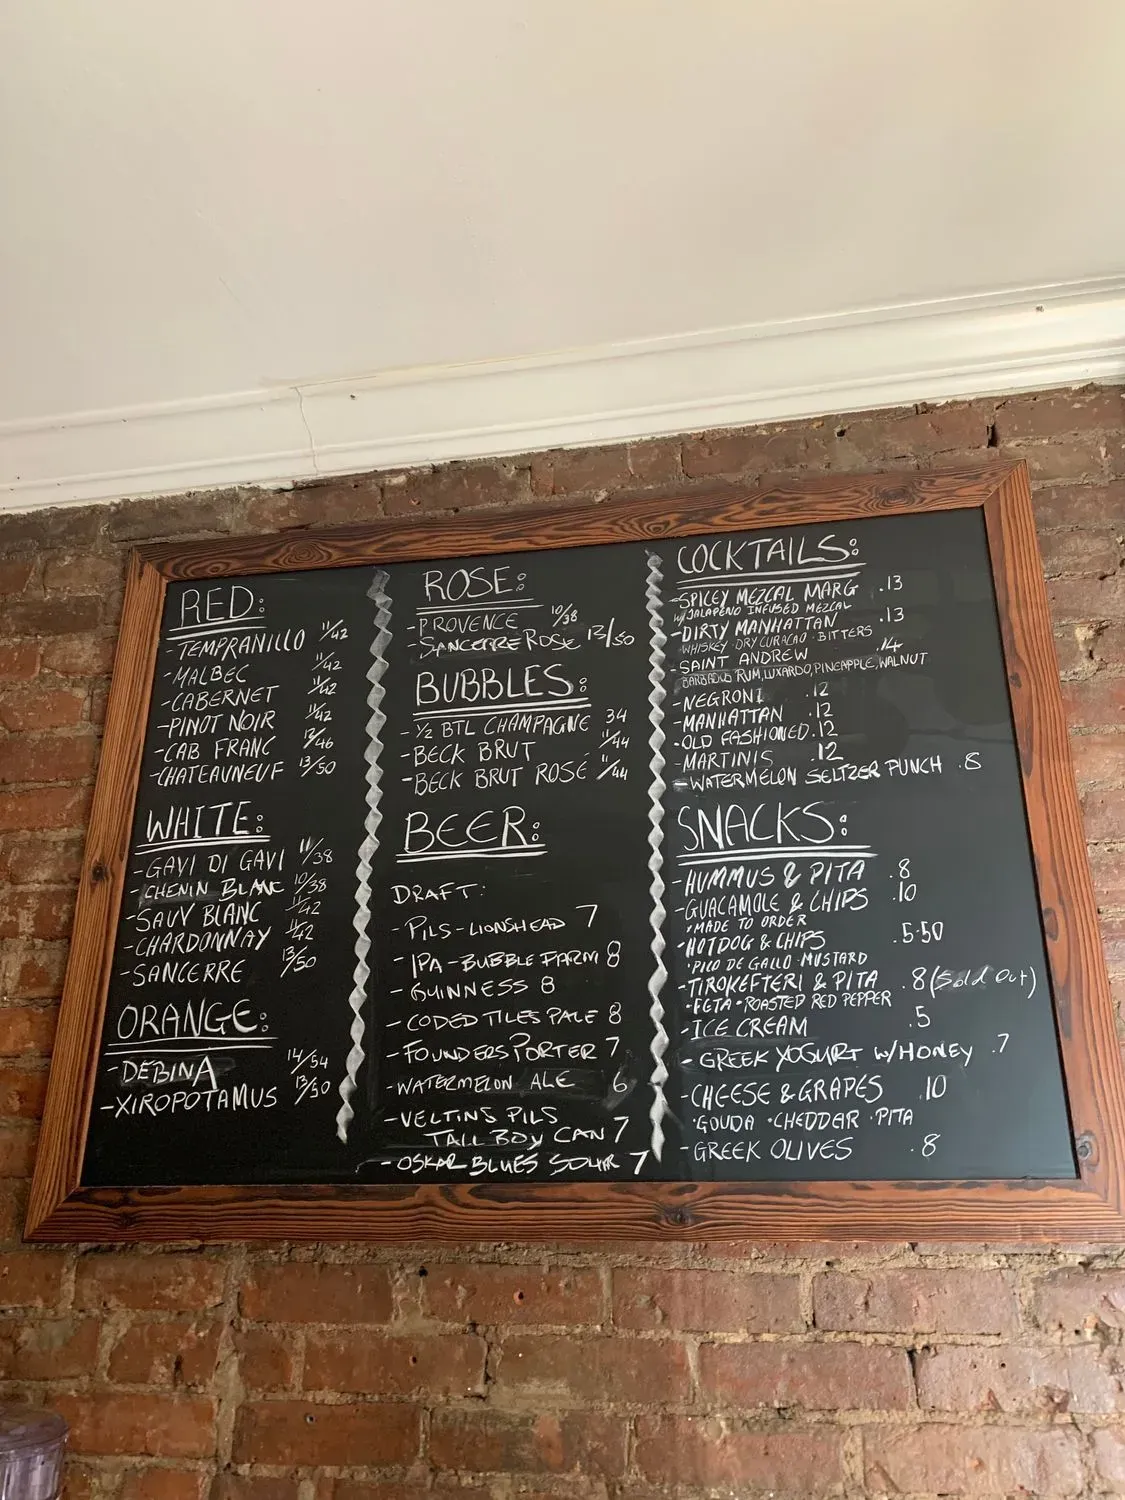 RED:
-TEMPRANILLO 11/42
-MALBEC 11/42
-CABERNET 11/42
-PINOT NOIR 11/42
-CAB FRANC 12/46
-CHATEAUNEUF 13/50
WHITE:
-GAVI DI GAVI 11/38
-CHENIN BLANC 10/38
-SAUV BLANC 11/42
-CHARDONNAY 11/42
-SANCERRE 13/50
ORANGE:
-DEBINA 14/54
-XIROPOTAMUS 13/50
ROSE:
-PROVENCE 10/38
-SANCERRE ROSE 13/50
BUBBLES:
-½ BTL CHAMPAGNE 34
-BECK BRUT 11/44
-BECK BRUT ROSÉ 11/44
BEER:
DRAFT:
-PILS-LIONSHEAD 7
-IPA-BUBBLE FARM 8
-GUINNESS 8
-CODED TILES PALE 8
-FOUNDERS PORTER 7
-WATERMELON ALE 6
-VELTINS PILS
TALL BOY CAN 7
-OSKAR BLUES 7
COCKTAILS:
-SPICEY MEZCAL MARG .13
W/JALAPENO INFUSED MEZCAL
-DIRTY MANHATTAN .13
WHISKEY·DRY CURACAO·BITTERS
-SAINT ANDREW .14
BARBADOS RUM, LUXARDO, PINEAPPLE, WALNUT
-NEGRONI .12
-MANHATTAN .12
-OLD FASHIONED .12
-MARTINIS .12
-WATERMELON SELTZER PUNCH .8
SNACKS:
-HUMMUS & PITA .8
-GUACAMOLE & CHIPS .10
·MADE TO ORDER
-HOTDOG & CHIPS .5.50
·PICO DE GALLO·MUSTARD
-TIROKEFTERI & PITA .8 (Sold Out)
·FETA·ROASTED RED PEPPER
-ICE CREAM .5
-GREEK YOGURT W/HONEY .7
-CHEESE & GRAPES .10
·GOUDA·CHEDDAR·PITA
-GREEK OLIVES .8